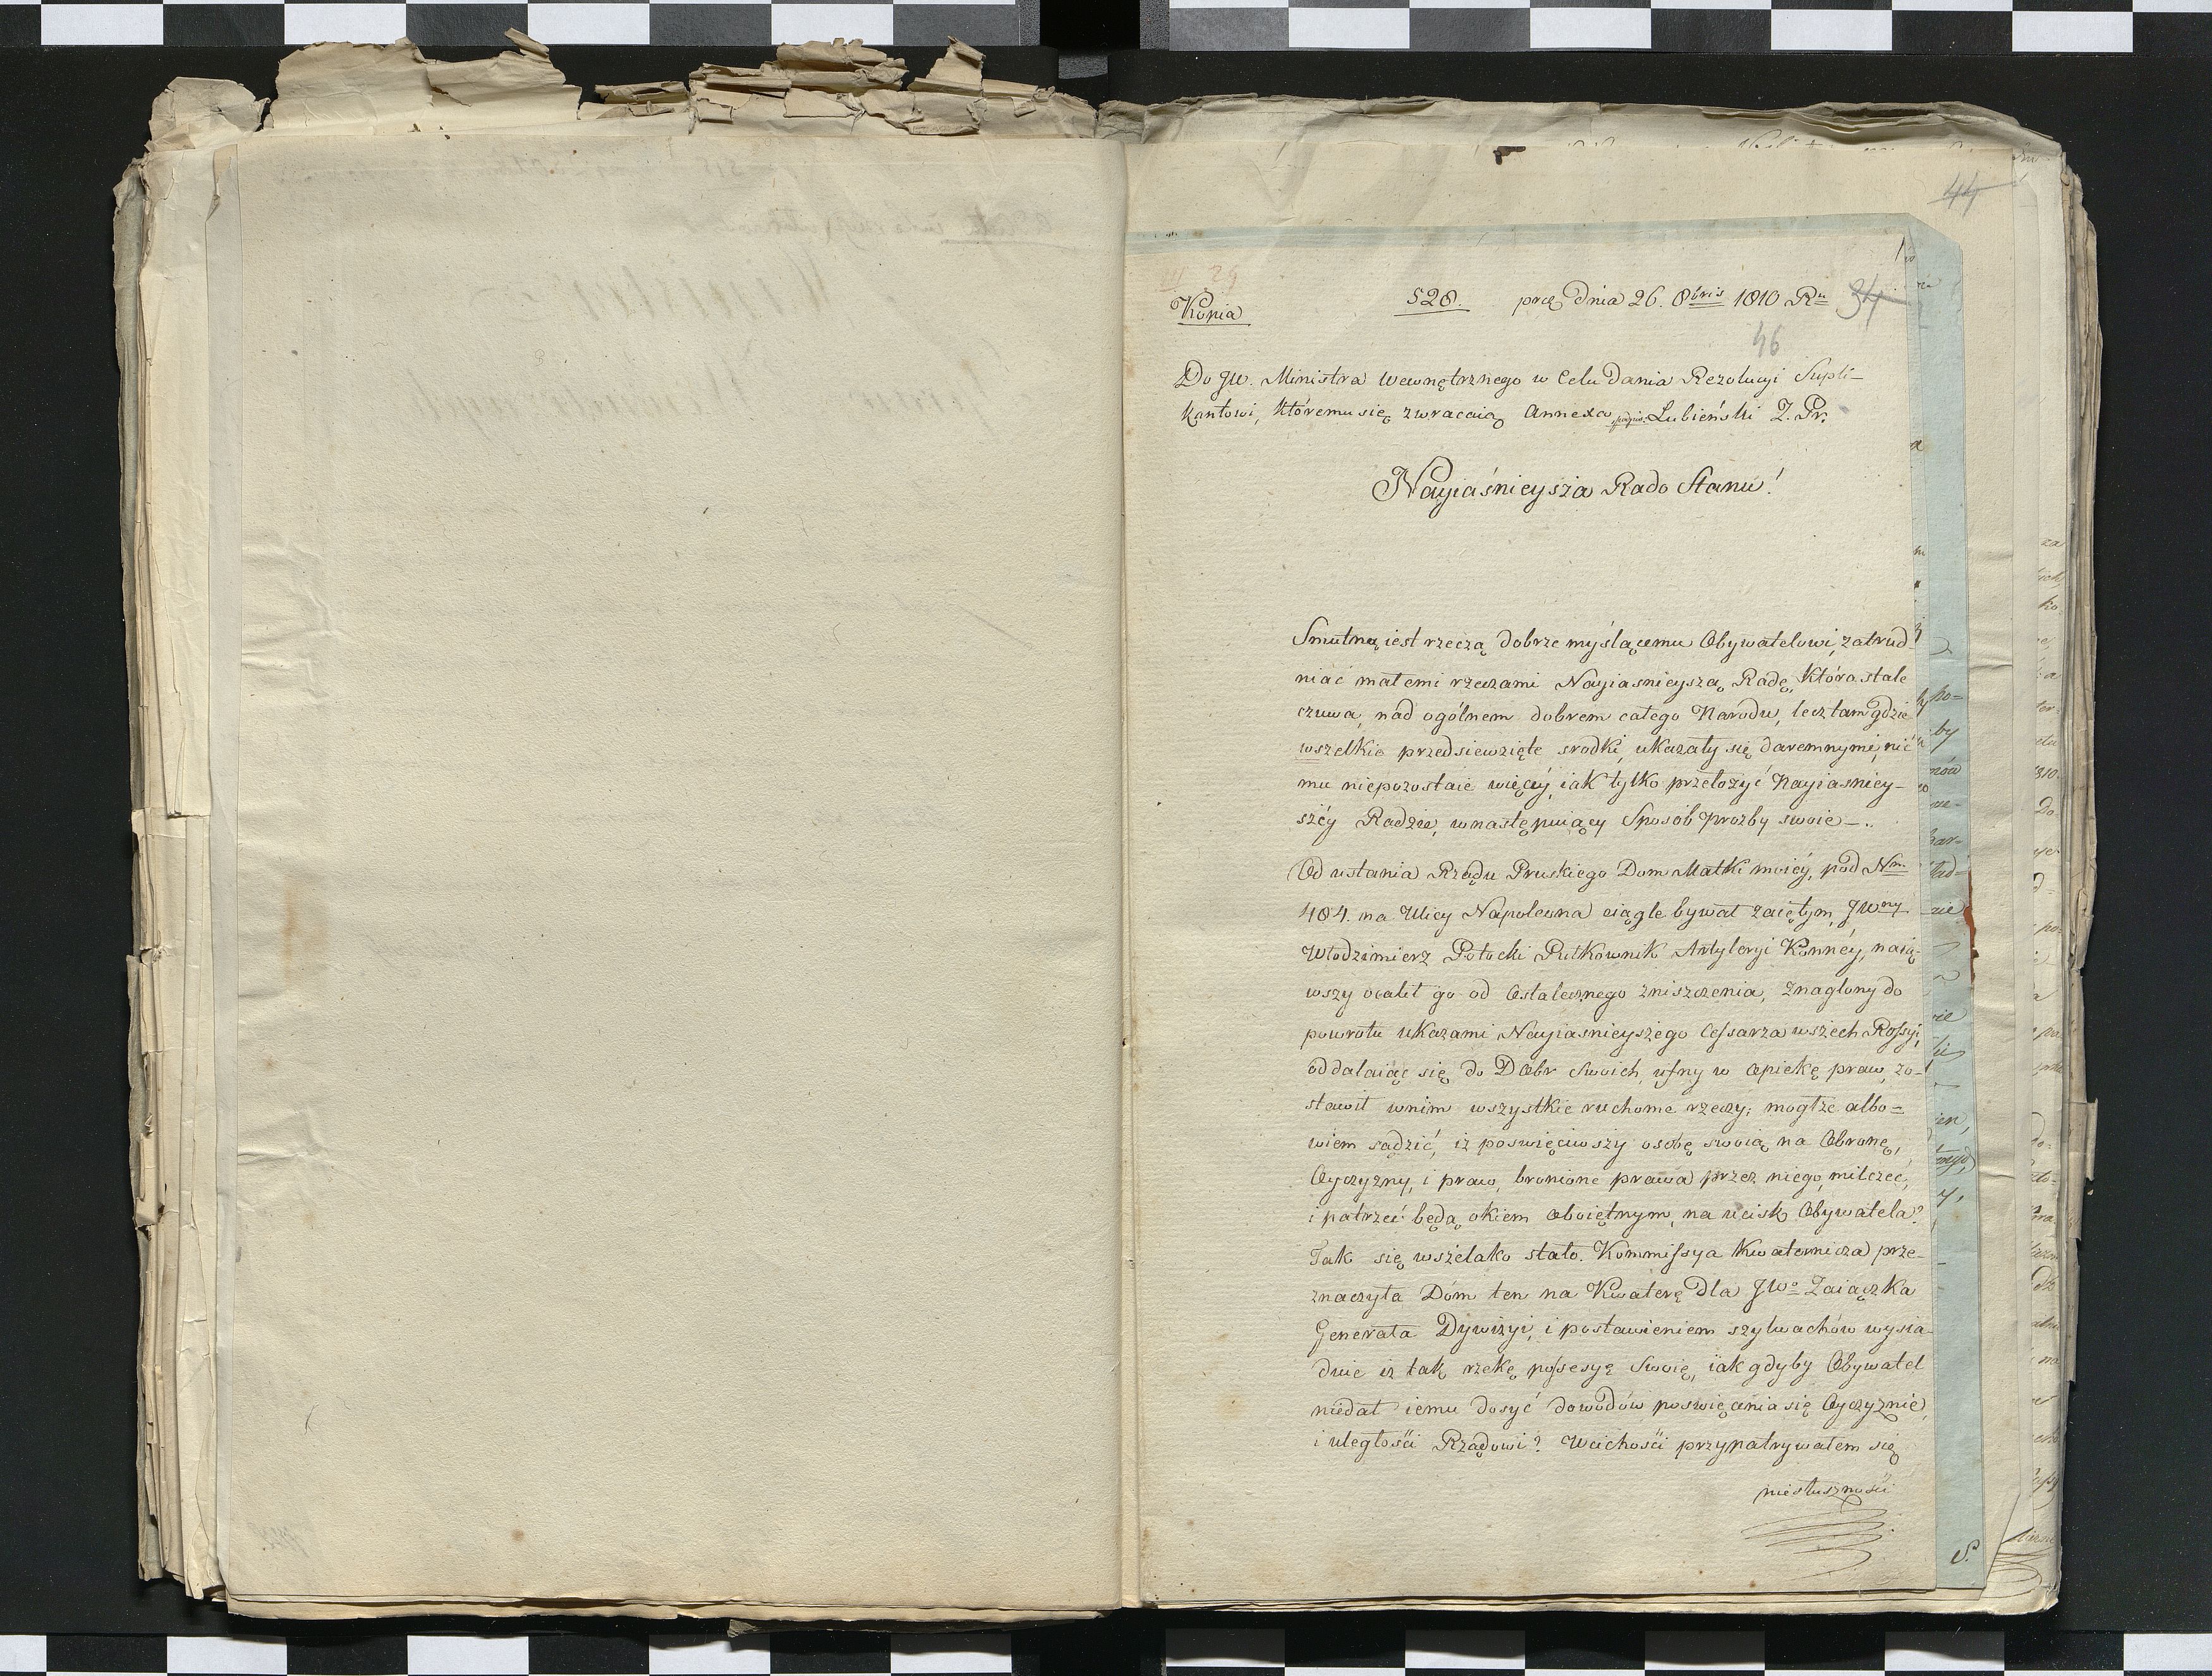 44
Kopia
528. prę. Dnia 26. 8bris 1810 Ru 34
46
Do JW. Ministra Wewnętrznego w Celu Dania Rezolucyi Supli-
kantowi, któremu się zwracaią Annexa podpis. Lubieński Z. Pr.
Nayiaśnieysza Rado Stanu!
Smutną iest rzeczą dobrze myślącemu Obywatelowi, zatrud-
niać małemi rzeczami Nayiasnieyszą Radę, która stale
czuwa, nad ogólnem dobrem całego Narodu, lecz tam gdzie
wszelkie przedsiewzięte srodki, ukazały się daremnymi, nic
mu niepozostaie więcéy, iak tylko przełożyć Nayiasniey-
széy Radzie, wnastępuiący Sposób prozby swoie –.
Od ustania Rządu Pruskiego Dom Matki moiéy, pod Nm
484. na Ulicy Napoleona ciągle bywał zaiętym, JWny
Włodzimierz Potocki Pułkownik Artyleryi Konnéy, naią-
wszy ocalił go od Ostatecznego zniszczenia, znaglony do
powrotu ukazami Nayiasnieyszego Cessarza wszech Rossyi,
oddalaiąc się do Dóbr Swoich, ufny w Opiekę praw, zo-
stawił wnim wszystkie ruchome rzeczy; mogłże albo=
wiem sądzić, iż poswięciwszy osobę swoią na Obronę,
Oyczyzny, i praw, bronione prawa przez niego, milczeć,
i patrzeć będą okiem oboiętnym, na ucisk Obywatela?
Tak się wszelako stało. Kommissya Kwaternicza prze-
znaczyła Dóm ten na Kwaterę dla JWo Zaiączka
Generała Dywizyi, i postawieniem szylwachów wysia-
duie iż tak rzekę possesyę Swoię, iak gdyby Obywatel
niedał iemu dosyć dowodów poswięcania się Oyczyznie,
i uległości Rządowi? Wcichości przypatrywałem się
niesłuszności